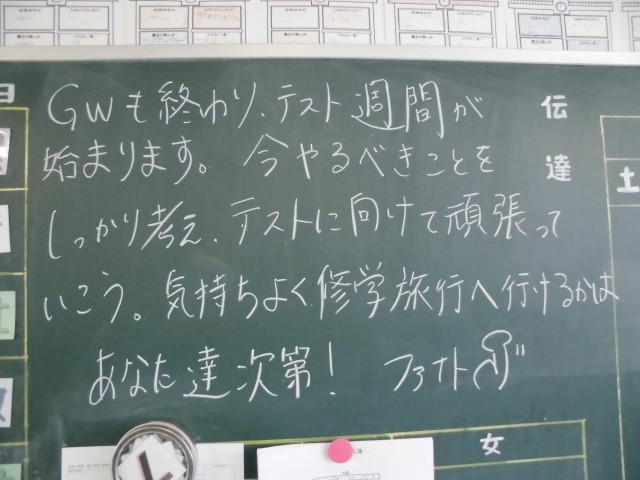 GWも終わり、テスト週間が
始まります。今やるべきことを
しっかり考え、テストに向けて頑張って
いこう。気持ちよく修学旅行へ行けるかは
あなた達次第！ ファイト
伝達
日
土
女